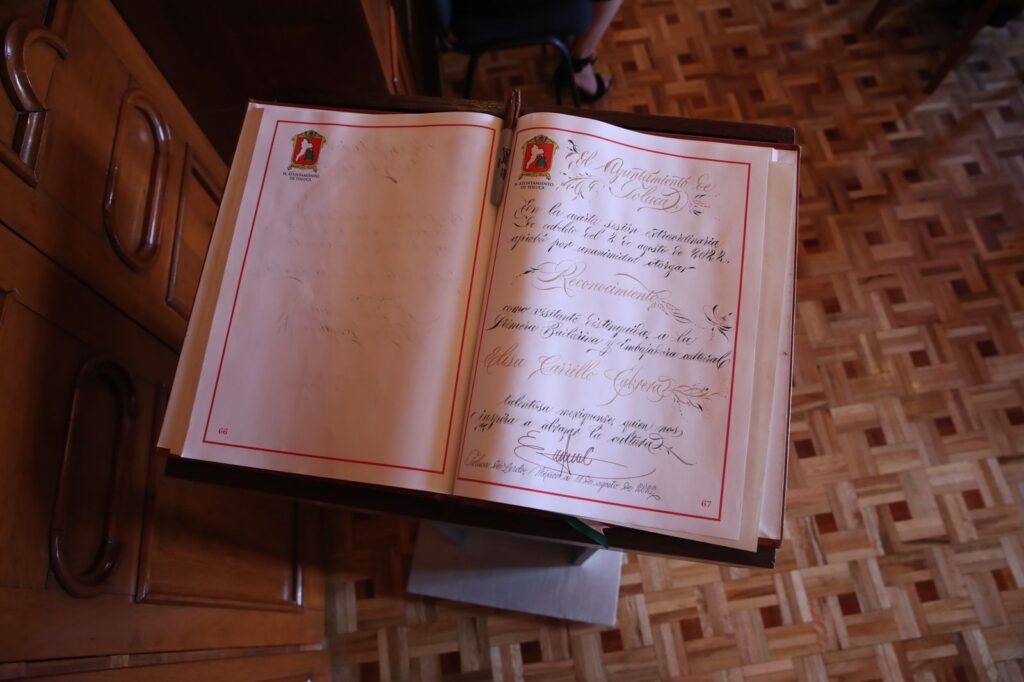 H. AYUNTAMIENTO
DE TOLUCA
66
H. AYUNTAMIENTO
DE TOLUCA
El Ayuntamiento de
Toluca
En la cuarta sesión extraordinaria
de cabildo del 2 de agosto de 2022,
aprobó por unanimidad otorgar
Reconocimiento
como visitante distinguida, a la
Primera Bailarina y Embajadora cultural
Elisa Carrillo Cabrera
talentosa mexiquense, quien nos
inspira a abrazar la cultura
Toluca de Lerdo, México a 11 de agosto de 2022
67